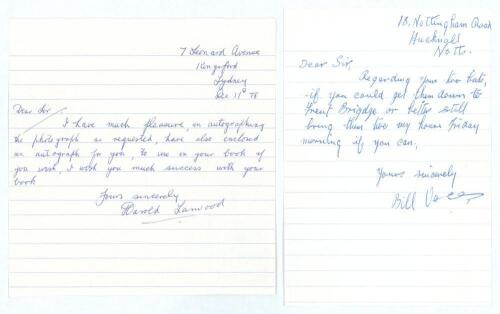 7 Leonard Avenue
Kingsford
Sydney
Dec 11th 78
Dear Sir
I have much pleasure, in autographing
the photograph as requested, have also enclosed
an autograph for you, to use in your book if
you wish, I wish you much success with your
book
Yours sincerely
Harold Larwood
18, Nottingham Road
Hucknall
Notts.
Dear Sir,
Regarding your two bats,
if you could get them down to
Trent Brigdge or better still
bring them too my house Friday
morning if you can,
Yours sincerely
Bill Voce